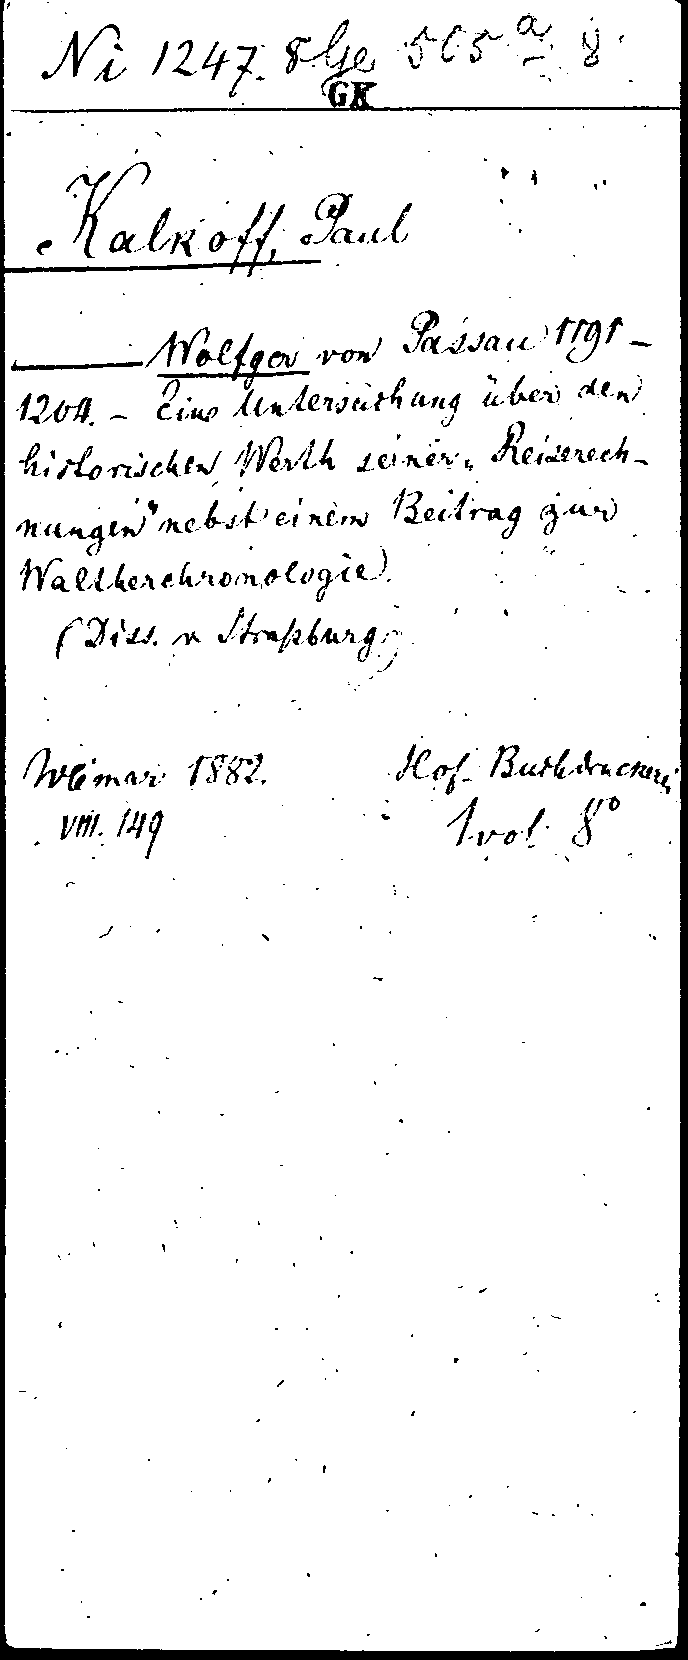 Ni 1247. 8 Ge 505 a 8
GK
Kalkoff, Paul
——— Wolfger von Passau 1191 –
1204. – Eine Untersuchung über den
historischen Werth seiner „Reiserech-
nungen" nebst einem Beitrag zur
Waltherchronologie.
(Diss. v Straßburg.)
Weimar 1882. Hof-Buchdruckerei
VIII. 149 1 vol 8°